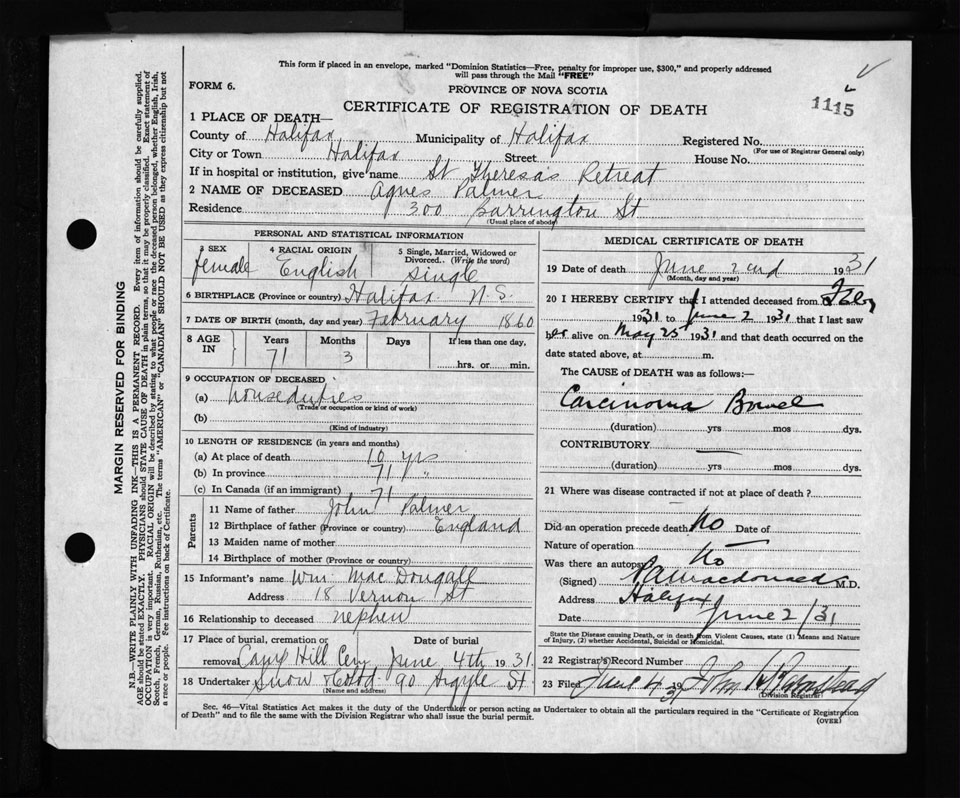 This form if placed in an envelope, marked "Dominion Statistics—Free, penalty for improper use, $300," and properly addressed
will pass through the Mail "FREE"
FORM 6.
PROVINCE OF NOVA SCOTIA
1115
CERTIFICATE OF REGISTRATION OF DEATH
1 PLACE OF DEATH—
County of Halifax Municipality of Halifax Registered No.
(For use of Registrar General only)
City or Town Halifax Street House No.
If in hospital or institution, give name St Theresa's Retreat
2 NAME OF DECEASED Agnes Palmer
Residence 300 Barrington St
(Usual place of abode)
PERSONAL AND STATISTICAL INFORMATION
3 SEX 4 RACIAL ORIGIN 5 Single, Married, Widowed or
Divorced.. (Write the word)
female English single
6 BIRTHPLACE (Province or country) Halifax N.S.
7 DATE OF BIRTH (month, day and year) February 1860
8 AGE IN Years Months Days If less than one day,
71 3 hrs. or min.
9 OCCUPATION OF DECEASED
(a) houseduties
(Trade or occupation or kind of work)
(b)
(Kind of industry)
10 LENGTH OF RESIDENCE (in years and months)
(a) At place of death 10 yrs
(b) In province 71 "
(c) In Canada (if an immigrant) 71
Parents
11 Name of father John Palmer
12 Birthplace of father (Province or country) England
13 Maiden name of mother
14 Birthplace of mother (Province or country)
15 Informant's name Wm. MacDougall
Address 18 Vernon St
16 Relationship to deceased nephew
17 Place of burial, cremation or Date of burial
removal Camp Hill Cem June 4th 1931.
18 Undertaker Snow & Co Ltd 90 Argyle St.
(Name and address)
MEDICAL CERTIFICATE OF DEATH
19 Date of death June 2nd 1931
(Month, day and year)
20 I HEREBY CERTIFY that I attended deceased from Feby
1931 to June 2 1931 that I last saw
her alive on May 25 1931 and that death occurred on the
date stated above, at m.
The CAUSE of DEATH was as follows:—
Carcinoma Bowel
(duration) yrs mos dys.
CONTRIBUTORY
(duration) yrs mos dys.
21 Where was disease contracted if not at place of death?
Did an operation precede death No Date of
Nature of operation
Was there an autopsy No
(Signed) Macdonald M.D.
Address Halifax
Date June 2/31
State the Disease causing Death, or in death from Violent Causes, state (1) Means and Nature
of Injury, (2) whether Accidental, Suicidal or Homicidal.
22 Registrar's Record Number
23 Filed June 4 1931 John
(Division Registrar)
Sec. 46—Vital Statistics Act makes it the duty of the Undertaker or person acting as Undertaker to obtain all the particulars required in the "Certificate of Registration
of Death" and to file the same with the Division Registrar who shall issue the burial permit.
(OVER)
MARGIN RESERVED FOR BINDING
N.B.—WRITE PLAINLY WITH UNFADING INK—THIS IS A PERMANENT RECORD. Every item of information should be carefully supplied.
AGE should be stated EXACTLY. PHYSICIANS should STATE CAUSE OF DEATH in plain terms, so that it may be properly classified. Exact statement of
OCCUPATION is very important. RACIAL ORIGIN will be described by stating to what people or race the deceased person belonged, whether English, Irish,
Scotch, French, German, Russian, Ruthenian, etc. The terms "AMERICAN" or "CANADIAN" SHOULD NOT BE USED as they express citizenship but not
a race or people. Fee instructions on back of Certificate.